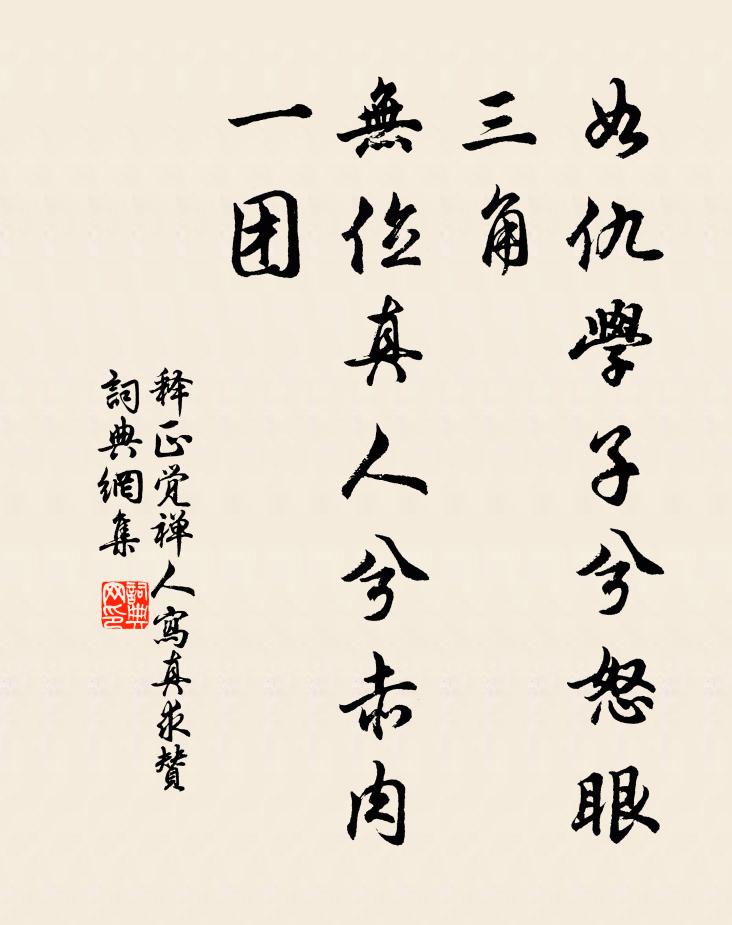 如仇學子兮怒眼
三角
無位真人兮赤肉
一团
释正觉禅人寫真求贊
詞典網集
詞典
网印